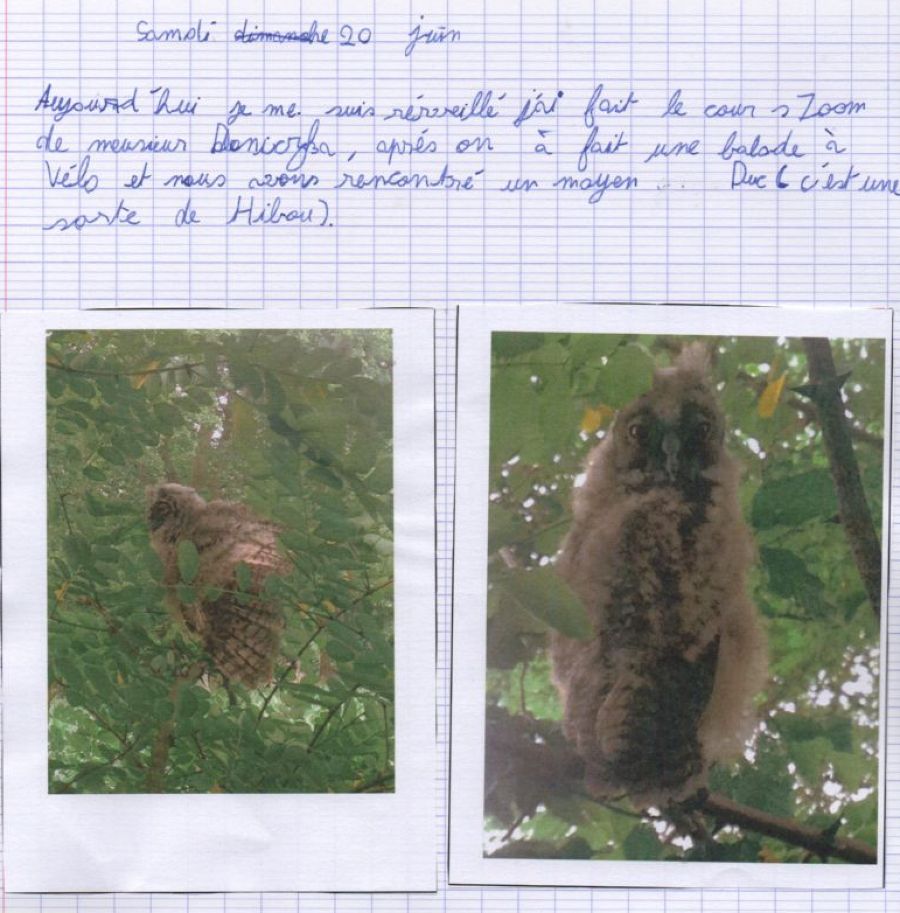 Samdi dimanche 20 juin
Aujourd'hui je me suis rérveillé j'ai fait le cour s Zoom
de meusieur , aprés on à fait une balade à
Vélo et nous avons rencontré un moyen ... Duc ( c'est une
sorte de Hibou).